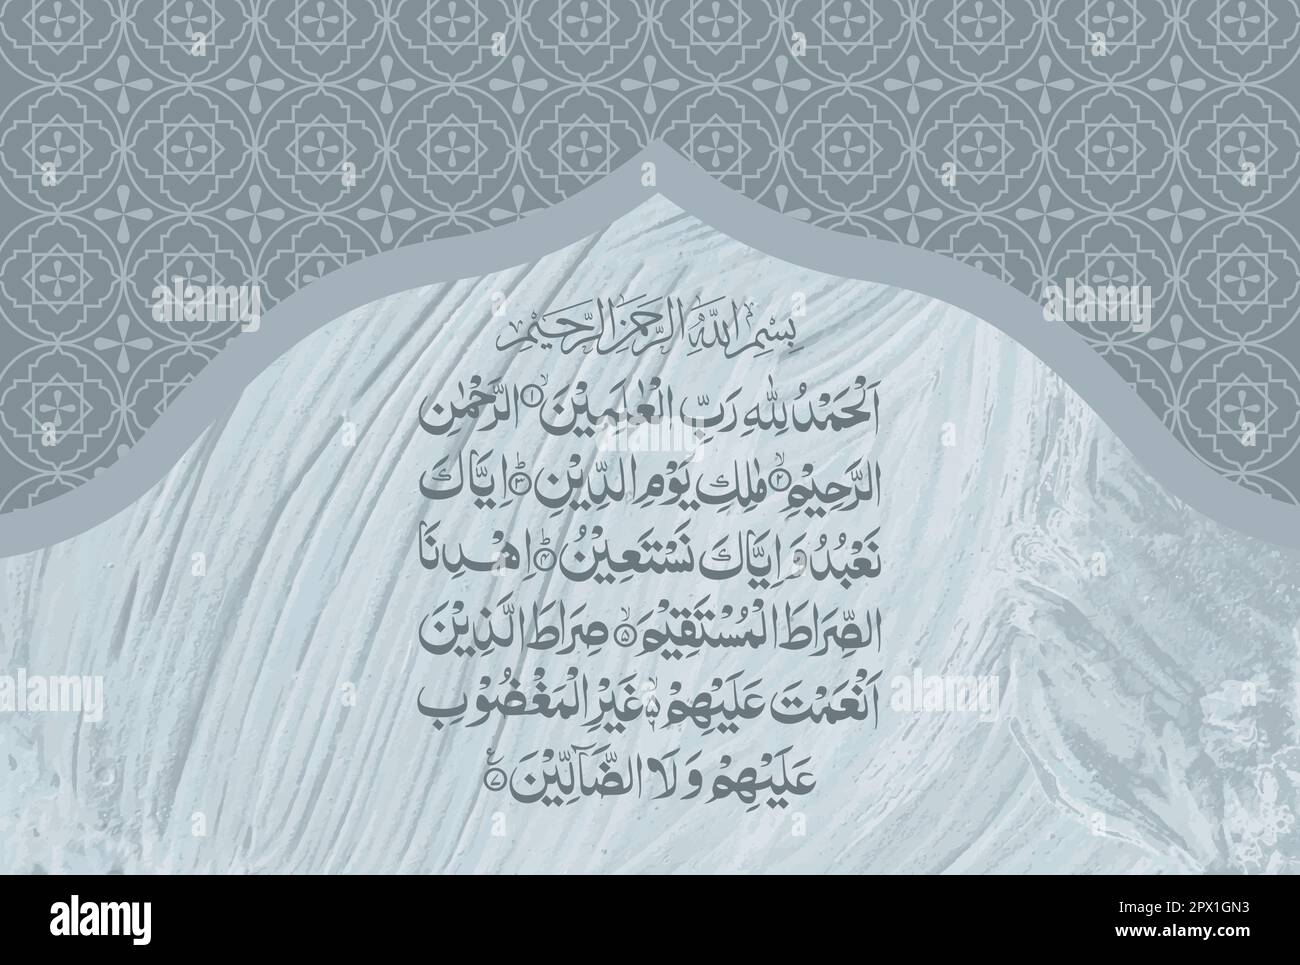 بِسْمِ اللّٰهِ الرَّحْمٰنِ الرَّحِيْمِ
اَلْحَمْدُ لِلّٰهِ رَبِّ الْعٰلَمِيْنَ ۙ﴿۱﴾ الرَّحْمٰنِ
الرَّحِيْمِ ۙ﴿۲﴾ مٰلِكِ يَوْمِ الدِّيْنِ ؕ﴿۳﴾ اِيَّاكَ
نَعْبُدُ وَ اِيَّاكَ نَسْتَعِيْنُ ؕ﴿۴﴾ اِهْدِنَا
الصِّرَاطَ الْمُسْتَقِيْمَ ۙ﴿۵﴾ صِرَاطَ الَّذِيْنَ
اَنْعَمْتَ عَلَيْهِمْ ۙ۬ غَيْرِ الْمَغْضُوْبِ
عَلَيْهِمْ وَ لَا الضَّآلِّيْنَ ﴿۷﴾
alamy
a
alamy
Image ID: 2PX1GN3
www.alamy.com